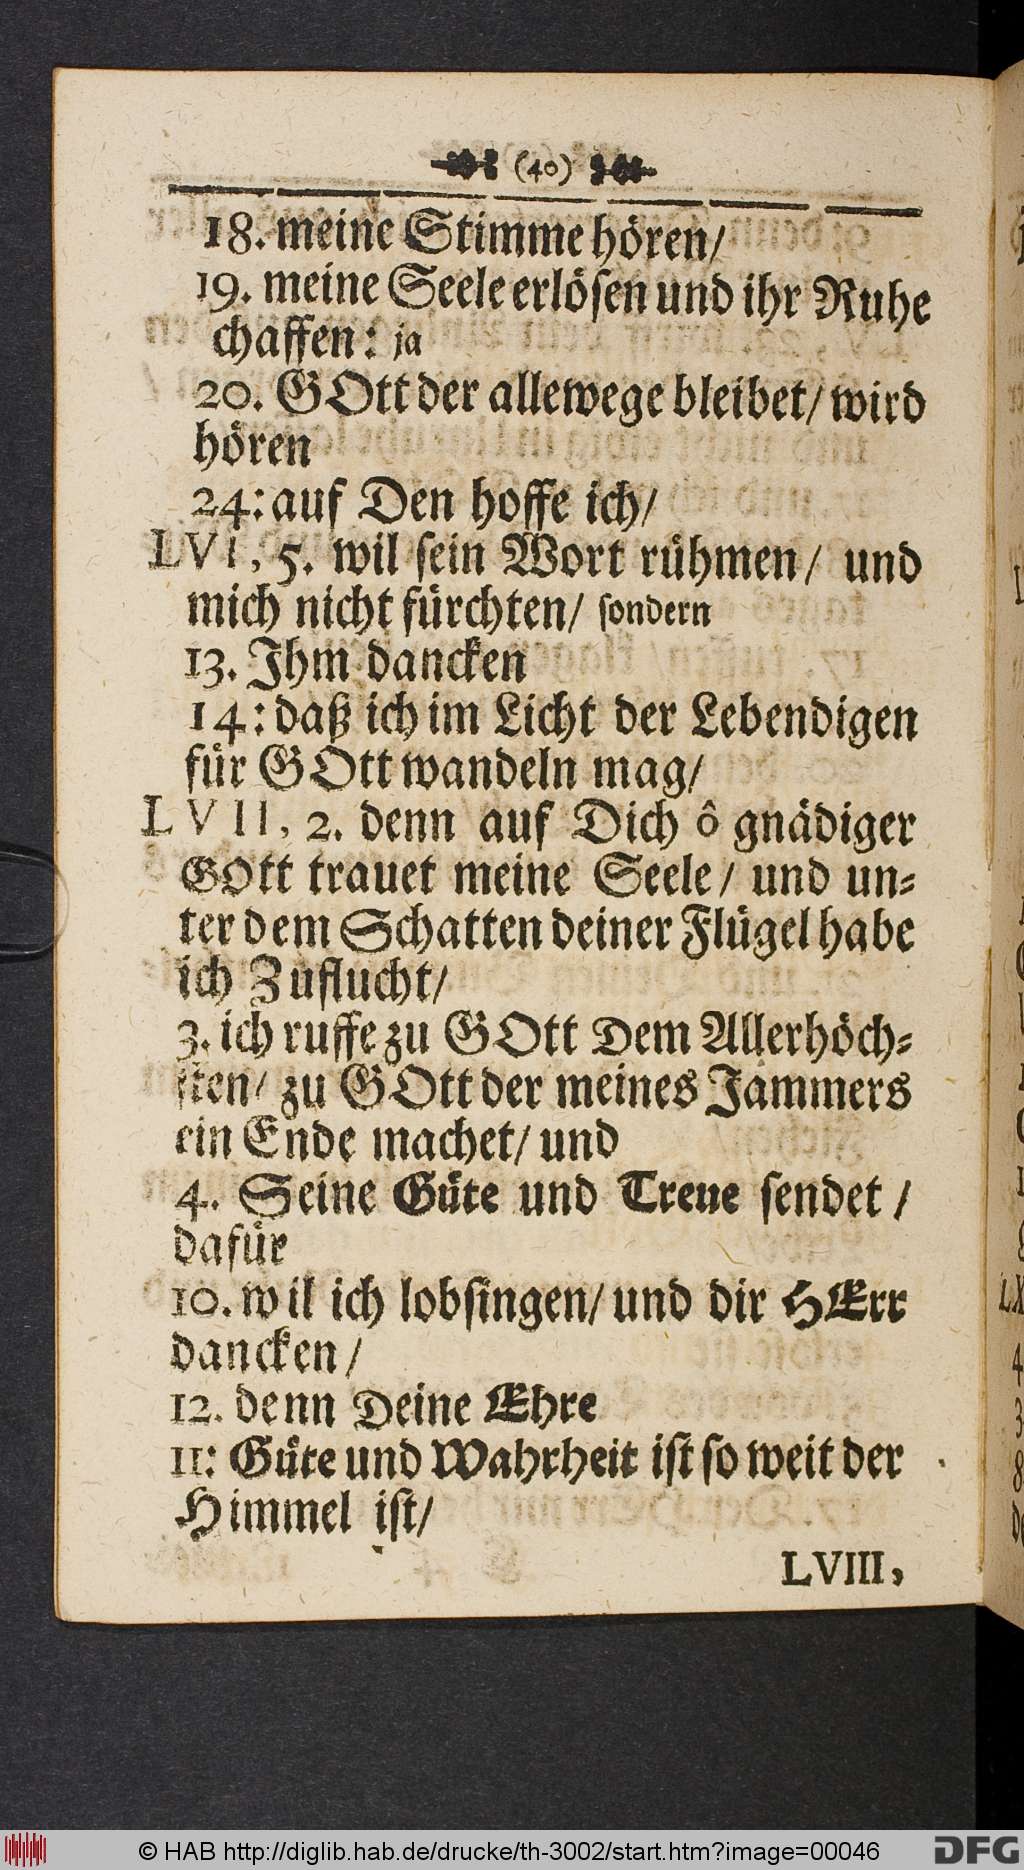 (40)
18. meine Stimme hören/
19. meine Seele erlösen und ihr Ruhe
chaffen: ja
20. GOtt der allewege bleibet/ wird
hören
24: auf Den hoffe ich/
LVI, 5. wil sein Wort rühmen/ und
mich nicht fürchten/ sondern
13. Ihm dancken
14: daß ich im Licht der Lebendigen
für GOtt wandeln mag/
LVII, 2. denn auf Dich ô gnädiger
GOtt trauet meine Seele/ und un-
ter dem Schatten deiner Flügel habe
ich Zuflucht/
3. ich ruffe zu GOtt Dem Allerhöch-
sten/ zu GOtt der meines Jammers
ein Ende machet/ und
4. Seine Güte und Treue sendet/
dafür
10. wil ich lobsingen/ und dir HErr
dancken/
12. denn Deine Ehre
11: Güte und Wahrheit ist so weit der
Himmel ist/
LVIII,
© HAB http://diglib.hab.de/drucke/th-3002/start.htm?image=00046
DFG